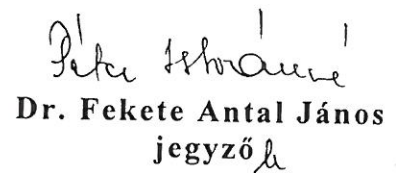 Istvánné
Dr. Fekete Antal János
jegyző h